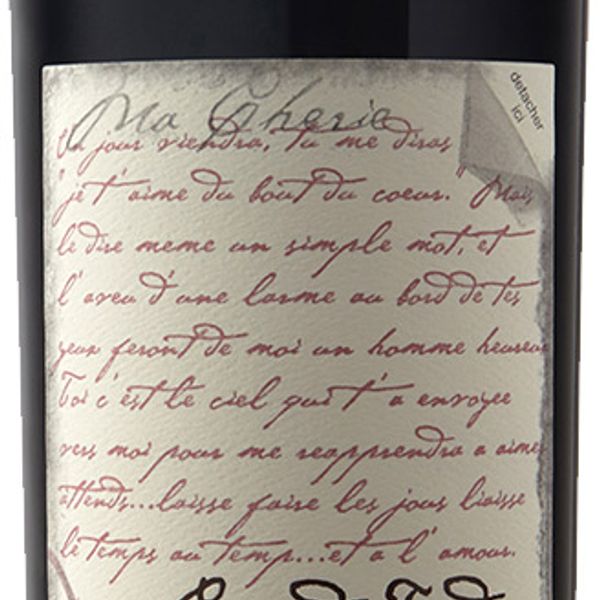 Ma Cherie
detacher
ici
Un jour viendra, tu me diras
"je t'aime du bout du coeur." Mais
le dire meme un simple mot, et
l'aveu d'une larme au bord de tes
yeux feront de moi un homme heureux
Toi c'est le ciel qui t'a envoyee
vers moi pour me reapprendra a aimer
attends...laisse faire les jous liaisse
le temps au temp...et a l'amour.